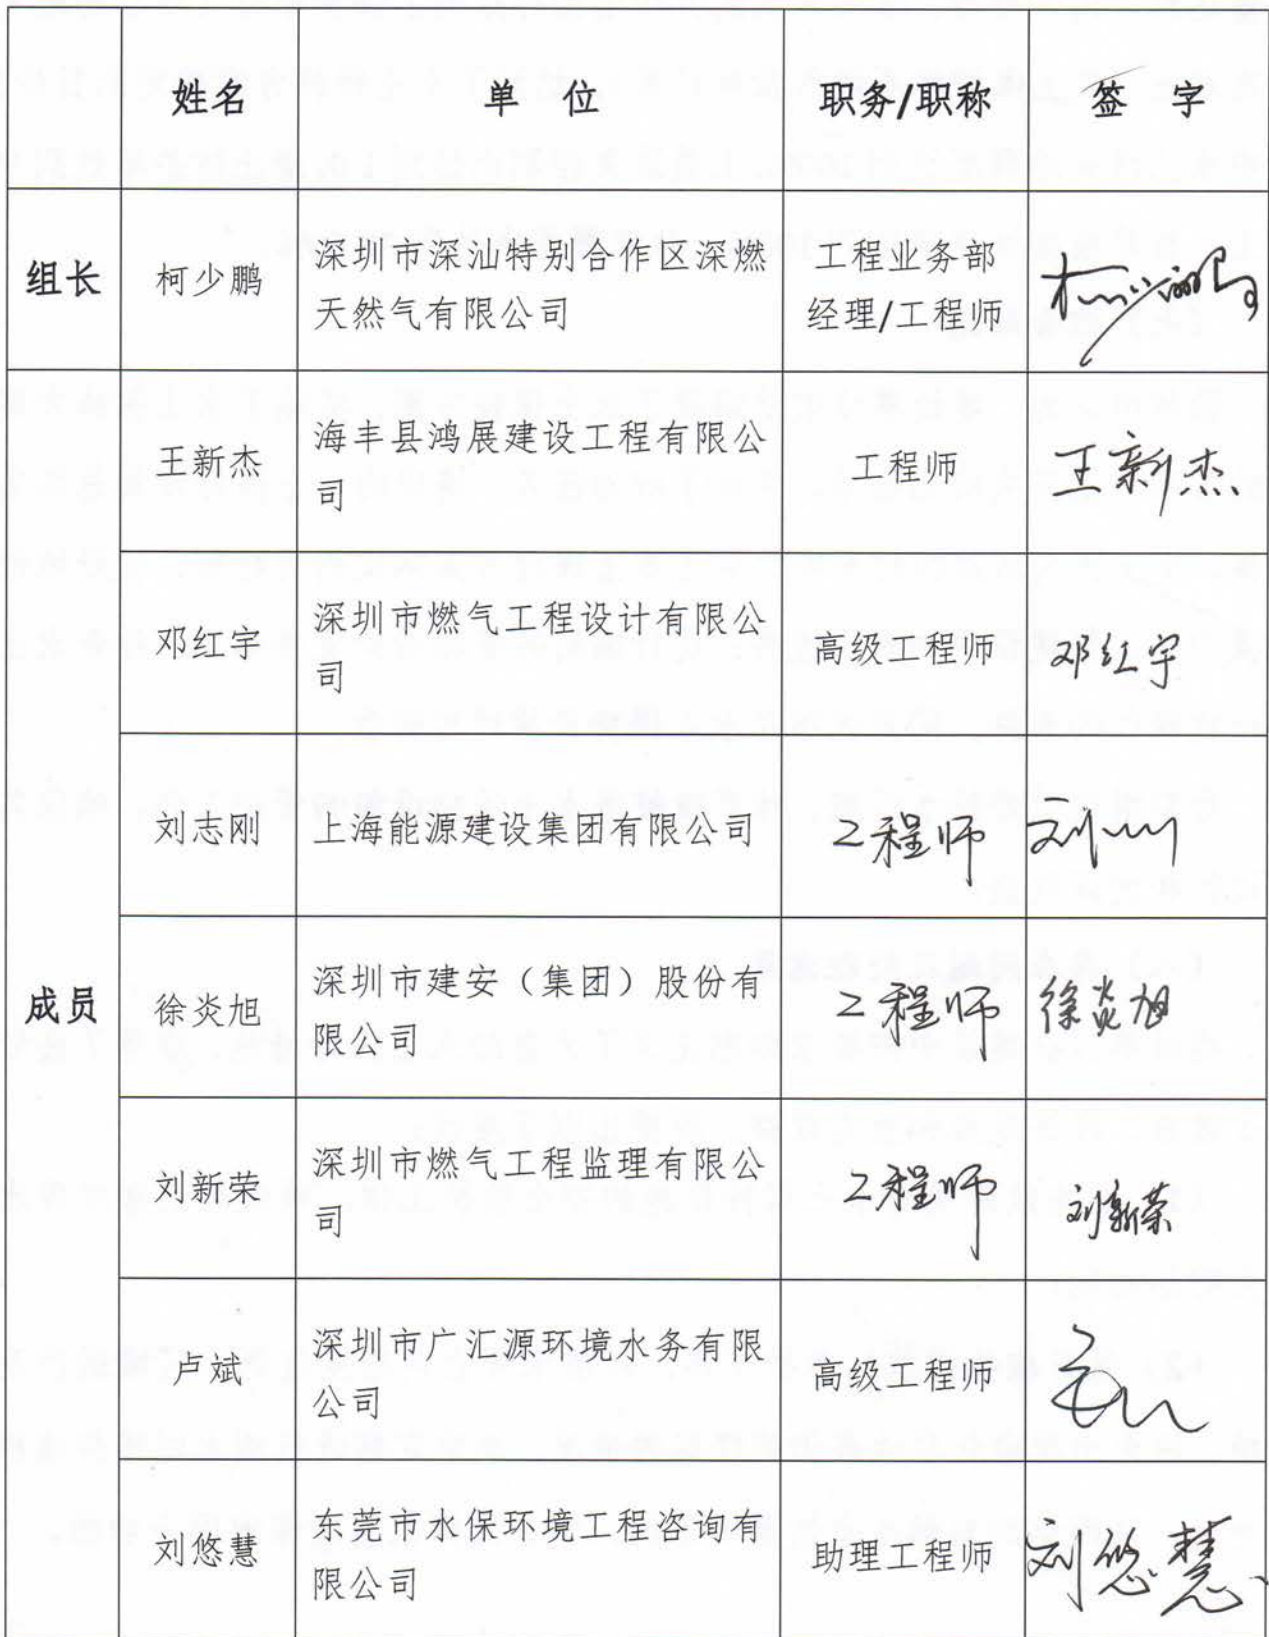 姓名 单 位 职务/职称 签 字
组长 柯少鹏 深圳市深汕特别合作区深燃 工程业务部
天然气有限公司 经理/工程师
王新杰 海丰县鸿展建设工程有限公 工程师 王新杰
司
邓红宇 深圳市燃气工程设计有限公 高级工程师 邓红宇
司
刘志刚 上海能源建设集团有限公司 工程师
成员 徐炎旭 深圳市建安（集团）股份有 工程师 徐炎旭
限公司
刘新荣 深圳市燃气工程监理有限公 工程师 刘新荣
司
卢斌 深圳市广汇源环境水务有限 高级工程师
公司
刘悠慧 东莞市水保环境工程咨询有 助理工程师 刘悠慧
限公司